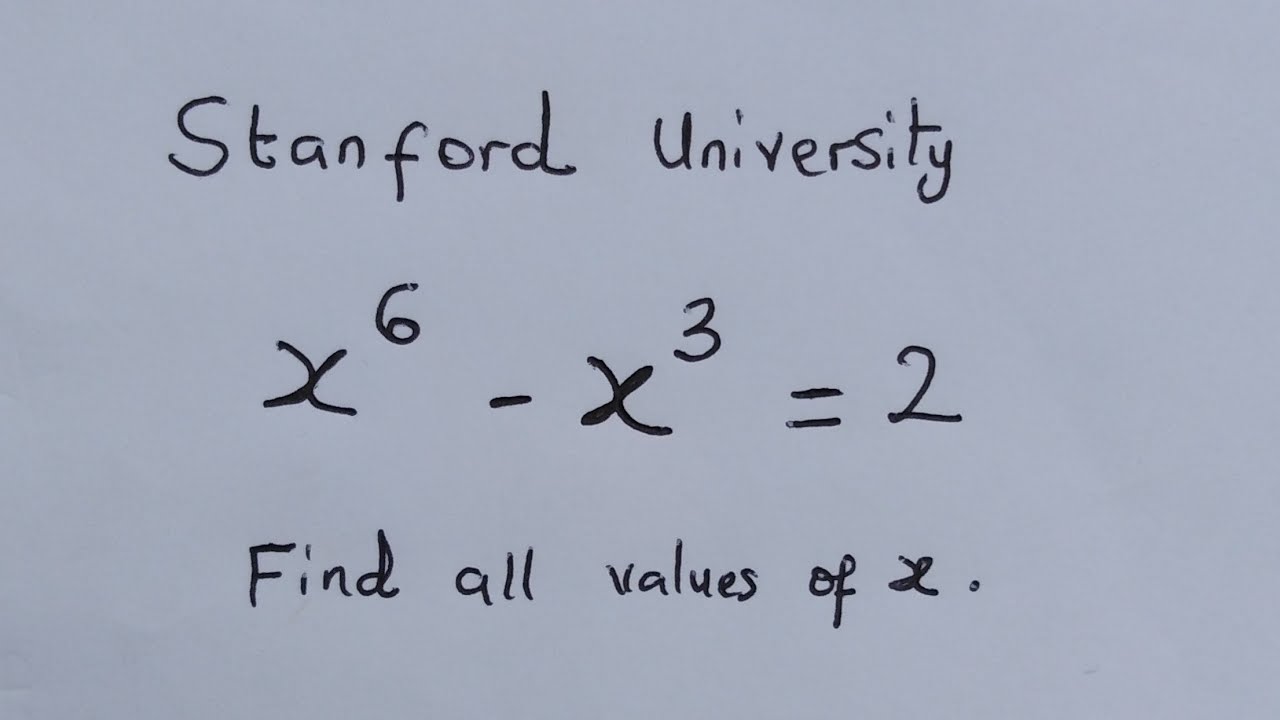 Stanford University
x⁶ - x³ = 2
Find all values of x.